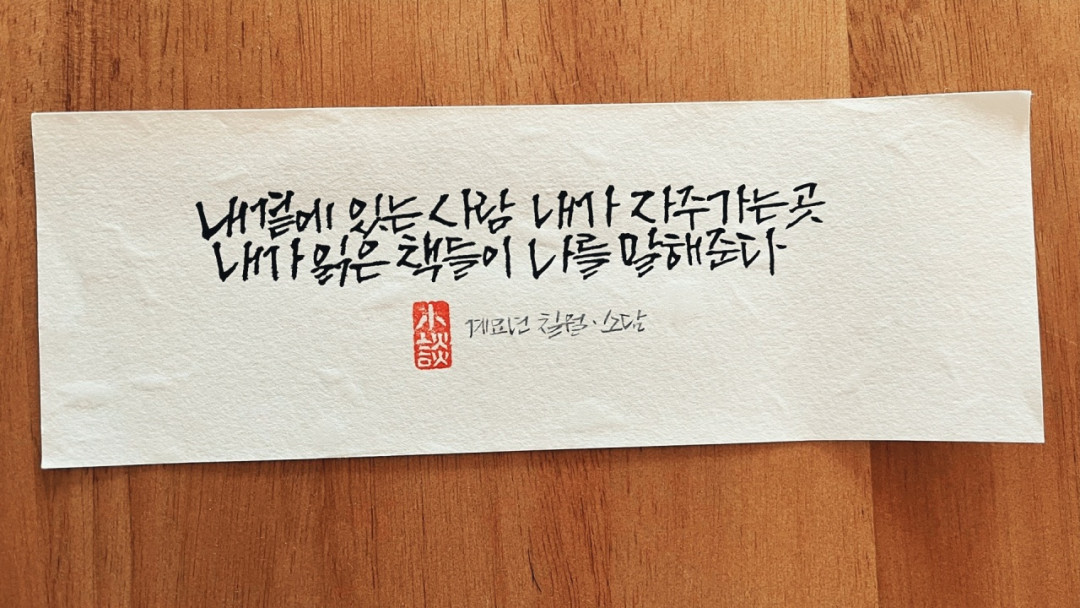 내곁에 있는 사람 내가 자주가는 곳
내가 읽은 책들이 나를 말해준다
小談 계묘년 칠월·소담